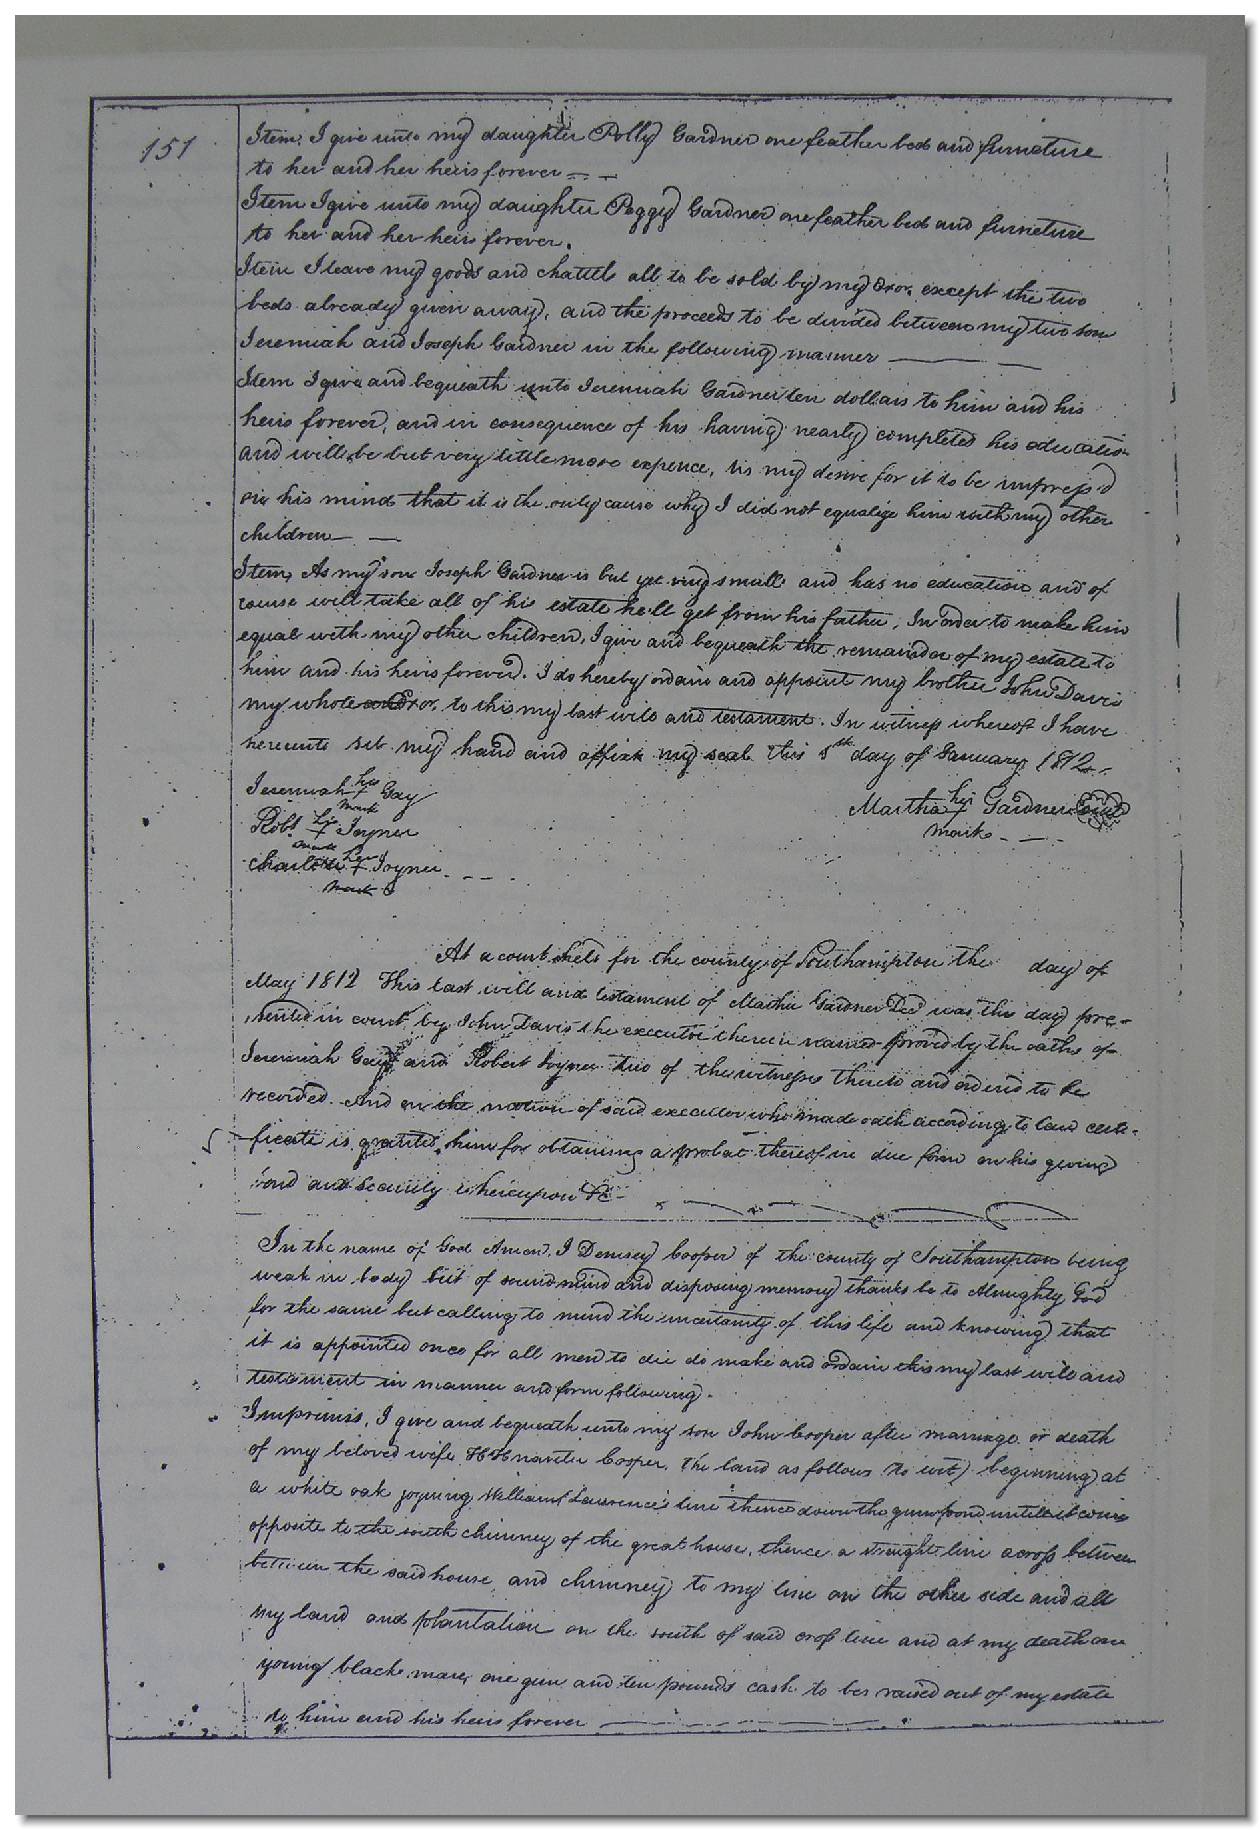 151
Item, I give unto my daughter Polly Gardner one feather bed and furneture
to her and her heirs forever
Item I give unto my daughter Peggy Gardner one feather bed and furneture
to her and her heirs forever.
Item I leave my goods and chattels all to be sold by my Exor. except the two
beds already given away, and the proceeds to be divided between my two sons
Jeremiah and Joseph Gardner in the following manner
Item I give and bequeath unto Jeremiah Gardner ten dollars to him and his
heirs forever, and in consequence of his having nearly completed his education
and will be but very little more expence, tis my desire for it to be impress'd
on his mind that it is the only cause why I did not equalize him with my other
children
Item, As my son Joseph Gardner is but yet very small and has no education and of
course will take all of his estate he'll get from his father, In order to make him
equal with my other children, I give and bequeath the remainder of my estate to
him and his heirs forever. I do hereby ordain and appoint my brother John Davis
my whole Exor. to this my last will and testament. In witness whereof I have
hereunto set my hand and affix my seal this 5th day of January 1812.
Jeremiah his + Gay
mark
Robt his + Joyner
mark
Charlotte her + Joyner
mark
Martha her + Gardner seal
mark
At a court held for the county of Southampton the day of
May 1812 This last will and testament of Martha Gardner Decd was this day pre-
sented in court by John Davis the executor therein named proved by the oaths of
Jeremiah Gay and Robert Joyner two of the witnesses thereto and ordered to be
recorded. And on the motion of said executor who made oath according to law certi-
ficate is granted him for obtaining a probat thereof in due form on his giving
bond and security whereupon &c
In the name of God Amen, I Demsey Cooper of the county of Southampton being
weak in body but of sound mind and disposing memory thanks be to Almighty God
for the same but calling to mind the uncertainty of this life and knowing that
it is appointed once for all men to die do make and ordain this my last will and
testament in manner and form following.
Imprimis, I give and bequeath unto my son John Cooper after marriage or death
of my beloved wife Cooper, the land as follows (to wit) beginning at
a white oak joyning William Lawrence's line thence down the gum pond untill it comes
opposite to the south chimney of the great house, thence a straight line across between
between the said house and chimney to my line on the other side and all
my land and plantation on the south of said cross line and at my death one
young black mare, one gun and ten pounds cash to be raised out of my estate
to him and his heirs forever